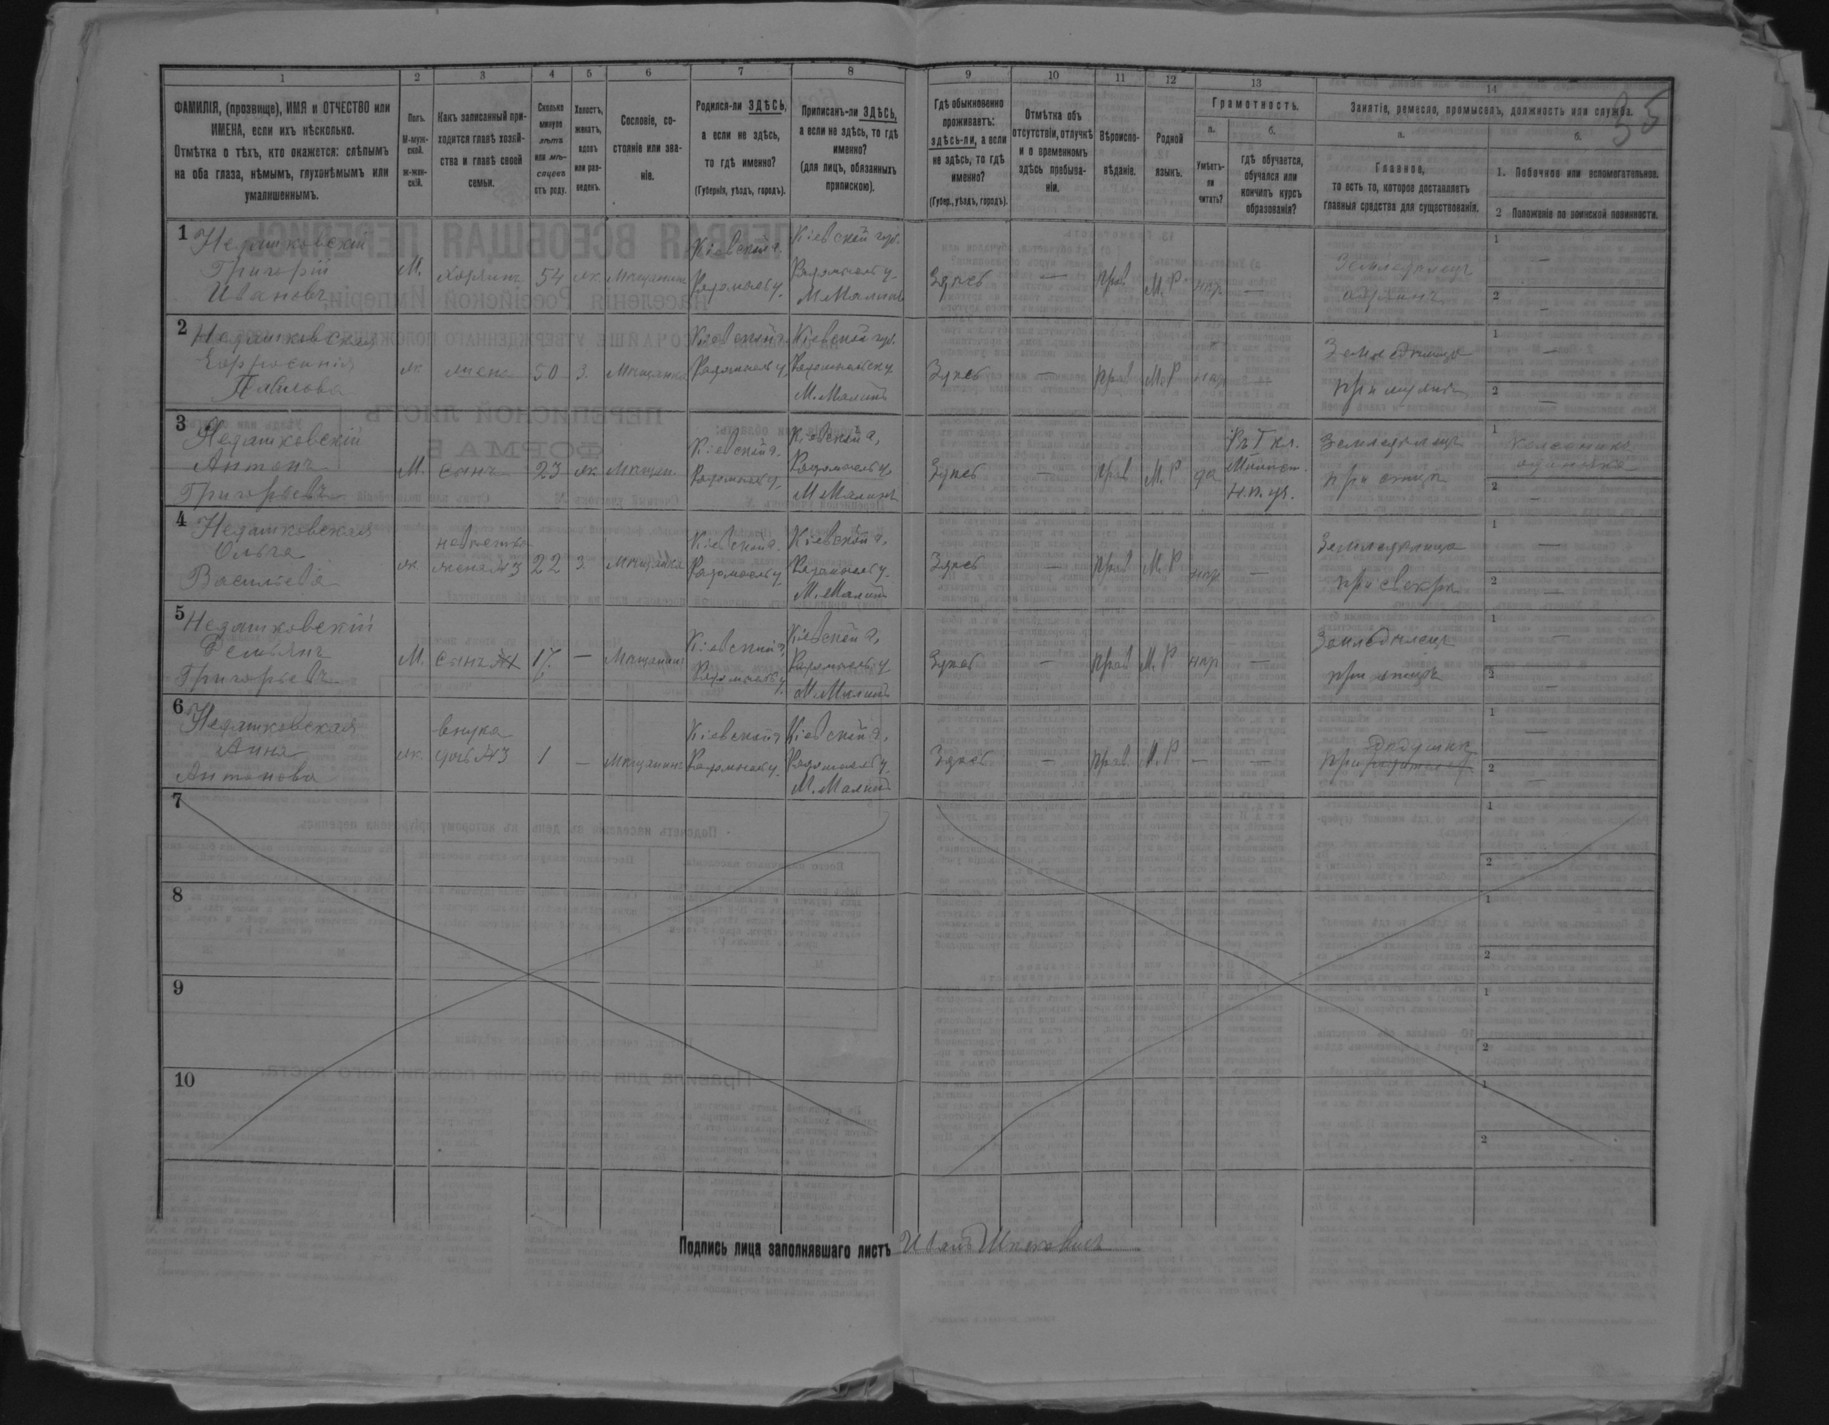 1 2 3 4 5 6 7 8 9 10 11 12 13 14
35
ФАМИЛІЯ, (прозвище), ИМЯ и ОТЧЕСТВО или
ИМЕНА, если ихъ нѣсколько.
Отмѣтка о тѣхъ, кто окажется: слѣпымъ
на оба глаза, нѣмымъ, глухонѣмымъ или
умалишеннымъ.
Полъ.
М-муж-
ской.
ж-жен-
скій.
Какъ записанный при-
ходится главѣ хозяй-
ства и главѣ своей
семьи.
Сколько
минуло
лѣтъ
или мѣ-
сяцевъ
отъ роду.
Холостъ,
женатъ,
вдовъ
или раз-
веденъ.
Сословіе, со-
стояніе или зва-
ніе.
Родился-ли ЗДѢСЬ,
а если не здѣсь,
то гдѣ именно?
(Губернія, уѣздъ, городъ).
Приписанъ-ли ЗДѢСЬ,
а если не здѣсь, то гдѣ
именно?
(для лицъ, обязанныхъ
припискою).
Гдѣ обыкновенно
проживаетъ:
здѣсь-ли, а если
не здѣсь, то гдѣ
именно?
(Губер., уѣздъ, городъ).
Отмѣтка объ
отсутствіи, отлучкѣ
и о временномъ
здѣсь пребыва-
ніи.
Вѣроиспо-
вѣданіе.
Родной
языкъ.
Грамотность.
а.
Умѣетъ-
ли
читать?
б.
гдѣ обучается,
обучался или
кончилъ курсъ
образованія?
Занятіе, ремесло, промыселъ, должность или служба.
а.
Главное,
то есть то, которое доставляетъ
главныя средства для существованія.
б.
1. Побочное или вспомогательное.
2 Положеніе по воинской повинности.
1 Недашковскій
Григорій
Ивановъ
М. хозяинъ 54 ж Мѣщанинъ
Кіевской г.
Радомысл у.
Кіевской губ.
Радомысл у.
М. Малинъ
Здѣсь — прав М. Р. нѣт —
Земледѣлецъ
1 —
2 —
2 Недашковская
Евфросинія
Павлова
ж жена 50 з. Мѣщанка
Кіевской г.
Радомысл у.
Кіевской губ.
М. Малинъ
Здѣсь — прав М. Р нѣт —
Земледѣлица
при мужѣ
1 —
2 —
3 Недашковскій
Антонъ
Григорьевъ
М. сынъ 23 ж Мѣщан.
Кіевской г.
Радомысл у.
Кіевской г.
Радомысл у.
М. Малинъ
Здѣсь — прав М. Р да
Въ I кл.
Минист.
н. п. уч.
Земледѣлецъ
при отцѣ
1
2 —
4 Недашковская
Ольга
Васильева
ж невѣстка
жена №3 22 з. Мѣщанка
Кіевской г.
Радомысл у.
Кіевской г.
Радомысл у.
М. Малинъ
Здѣсь — прав М. Р. нѣт —
Земледѣлица
при свекрѣ
1 —
2 —
5 Недашковскій
Демьянъ
Григорьевъ
М. сынъ 17 — Мѣщанинъ
Кіевской г.
Радомысл у.
Кіевской г.
Радомысл у.
М. Малинъ
Здѣсь — прав М. Р нѣт —
Земледѣлецъ
при отцѣ
1 —
2 —
6 Недашковская
Анна
Антонова
ж. внука
дочь №3 1 —
Кіевской г.
Радомысл у.
Кіевской г.
Радомысл у.
М. Малинъ
Здѣсь — прав. М. Р — —
при дѣдушкѣ
1 —
2 —
7 1 2
8 1 2
9 1 2
10 1 2
Подпись лица заполнявшаго листъ Иванъ